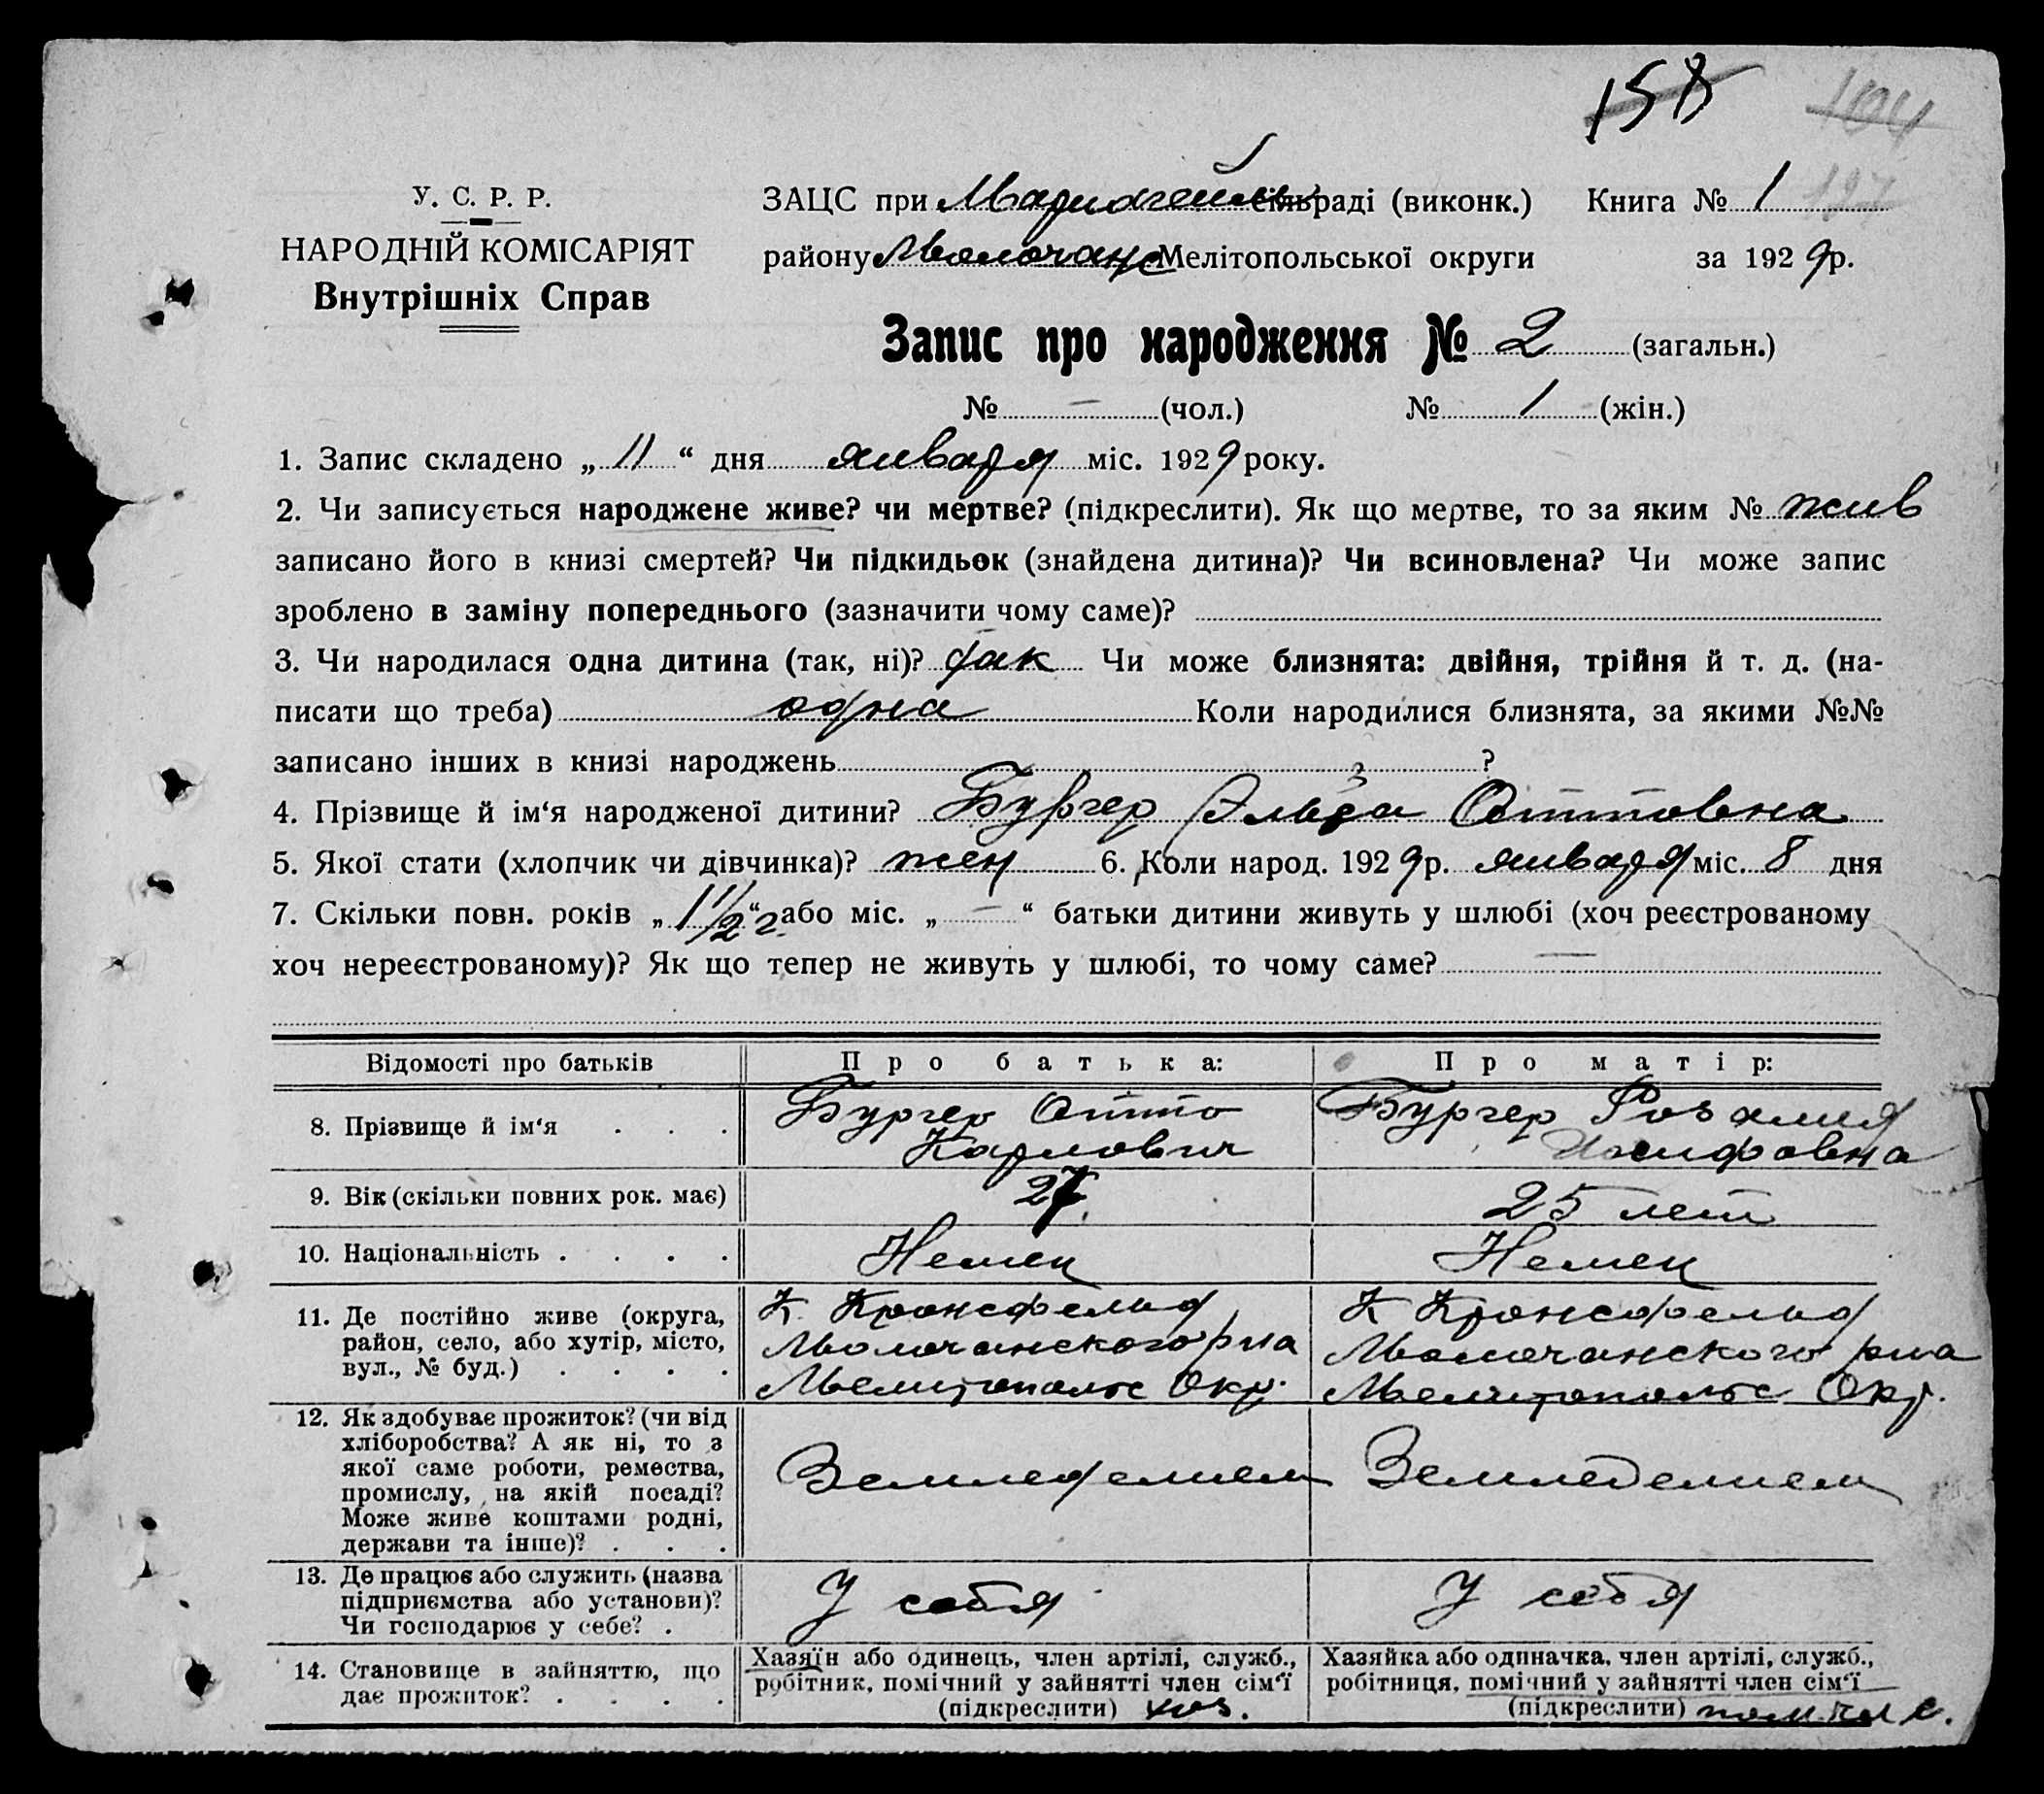 158 104
У. С. Р. Р.
НАРОДНІЙ КОМІСАРІЯТ
Внутрішніх Справ
ЗАЦС при Мариагейм сільраді (виконк.) Книга № 1 197
району Молочанс Мелітопольської округи за 1929 р.
Запис про народження № 2 (загальн.)
№ — (чол.) № 1 (жін.)
1. Запис складено „ 11 “ дня января міс. 1929 року.
2. Чи записується народжене живе? чи мертве? (підкреслити). Як що мертве, то за яким № жив
записано його в книзі смертей? Чи підкидьок (знайдена дитина)? Чи всиновлена? Чи може запис
зроблено в заміну попереднього (зазначити чому саме)?
3. Чи народилася одна дитина (так, ні)? так Чи може близнята: двійня, трійня й т. д. (на-
писати що треба) одна Коли народилися близнята, за якими №№
записано інших в книзі народжень ?
4. Прізвище й ім‘я народженої дитини? Бургер Эльза Оттовна
5. Якої стати (хлопчик чи дівчинка)? жен 6. Коли народ. 1929 р. января міс. 8 дня
7. Скільки повн. років „ 1 1/2 г. “ або міс. „ — “ батьки дитини живуть у шлюбі (хоч реєстрованому
хоч нереєстрованому)? Як що тепер не живуть у шлюбі, то чому саме? —
Відомості про батьків Про батька: Про матір:
8. Прізвище й ім‘я . . . Бургер Отто Бургер Розалия
Карлович Иосифовна
9. Вік (скільки повних рок. має) 27 25 лет
10. Національність . . . . Немец Немец
11. Де постійно живе (округа, К. Кронсфельд К Кронсфельд
район, село, або хутір, місто, Молочанского рна Молочанского рна
вул., № буд.) . . . . Мелитопольс Окр. Мелитопольс Окр.
12. Як здобуває прожиток? (чи від
хліборобства? А як ні, то з
якої саме роботи, ремества, Земледелием Земледелием
промислу, на якій посаді?
Може живе коштами родні,
держави та інше)? . . .
13. Де працює або служить (назва
підприємства або установи)? У себя У себя
Чи господарює у себе? .
14. Становище в зайняттю, що Хазяїн або одинець, член артілі, служб., Хазяйка або одиначка, член артілі, служб.,
дає прожиток? . . . . робітник, помічний у зайнятті член сім‘ї робітниця, помічний у зайнятті член сім‘ї
(підкреслити) хоз. (підкреслити) пом. чл с.